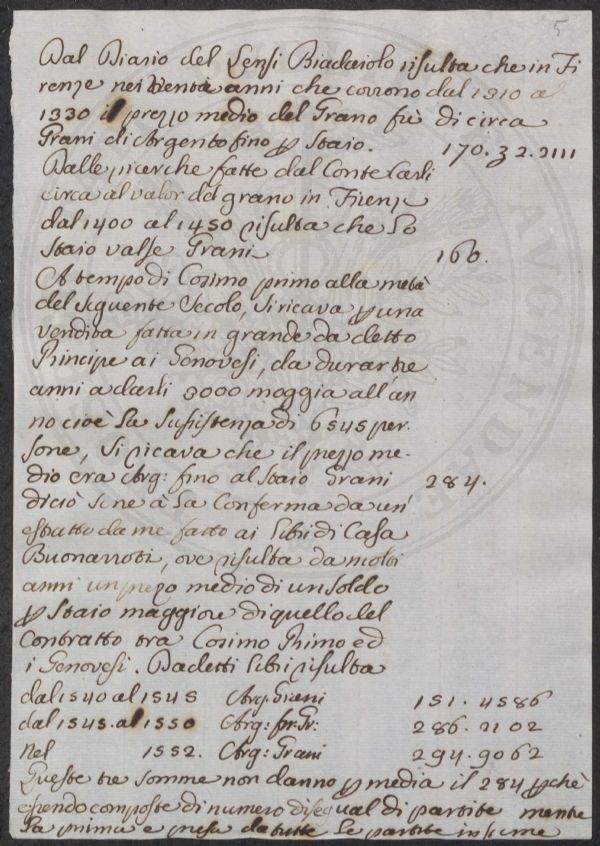 5
Dal Diario del Lensi Biadaiolo risulta che in Fi
renze nei trenta anni che corrono dal 1310 al
1330 il prezzo medio del Grano fù di circa
Grani di Argento fino ꝑ Staio. 170.32.2111
Dalle ricerche fatte dal Conte Carli
circa al valor del grano in Firenze
dal 1400 al 1450 risulta che Lo
Staio valse Grani 160.
A tempo di Cosimo primo alla metà
del seguente Secolo, si ricava ꝑ una
vendita fatta in grande da detto
Principe ai Genovesi, da durar tre
anni a darli 3000 moggia all'an
no cioè la sussistenza di 6545 per-
sone, si ricava che il prezzo me-
dio era Arg: fino al Staio Grani 284.
di ciò se ne à la Conferma da un'
estratto da me fatto ai Libri di Casa
Buonarroti, ove risulta da molti
anni un prezo medio di un soldo
ꝑ Staio maggiore di quello del
Contratto tra Cosimo Primo ed
i Genovesi. Da detti Libri risulta
dal 1540 al 1545 Arg: Grani 151.4586
dal 1545. al 1550 Arg: fn: Gr: 286.2102
Nel 1552. Arg: Grani 294.9062
Queste tre somme non danno ꝑ media il 284 ꝑchè
essendo composte di numero disegual di partite mentre
la prima e presa da tutte le partite insieme
AVGENDAE